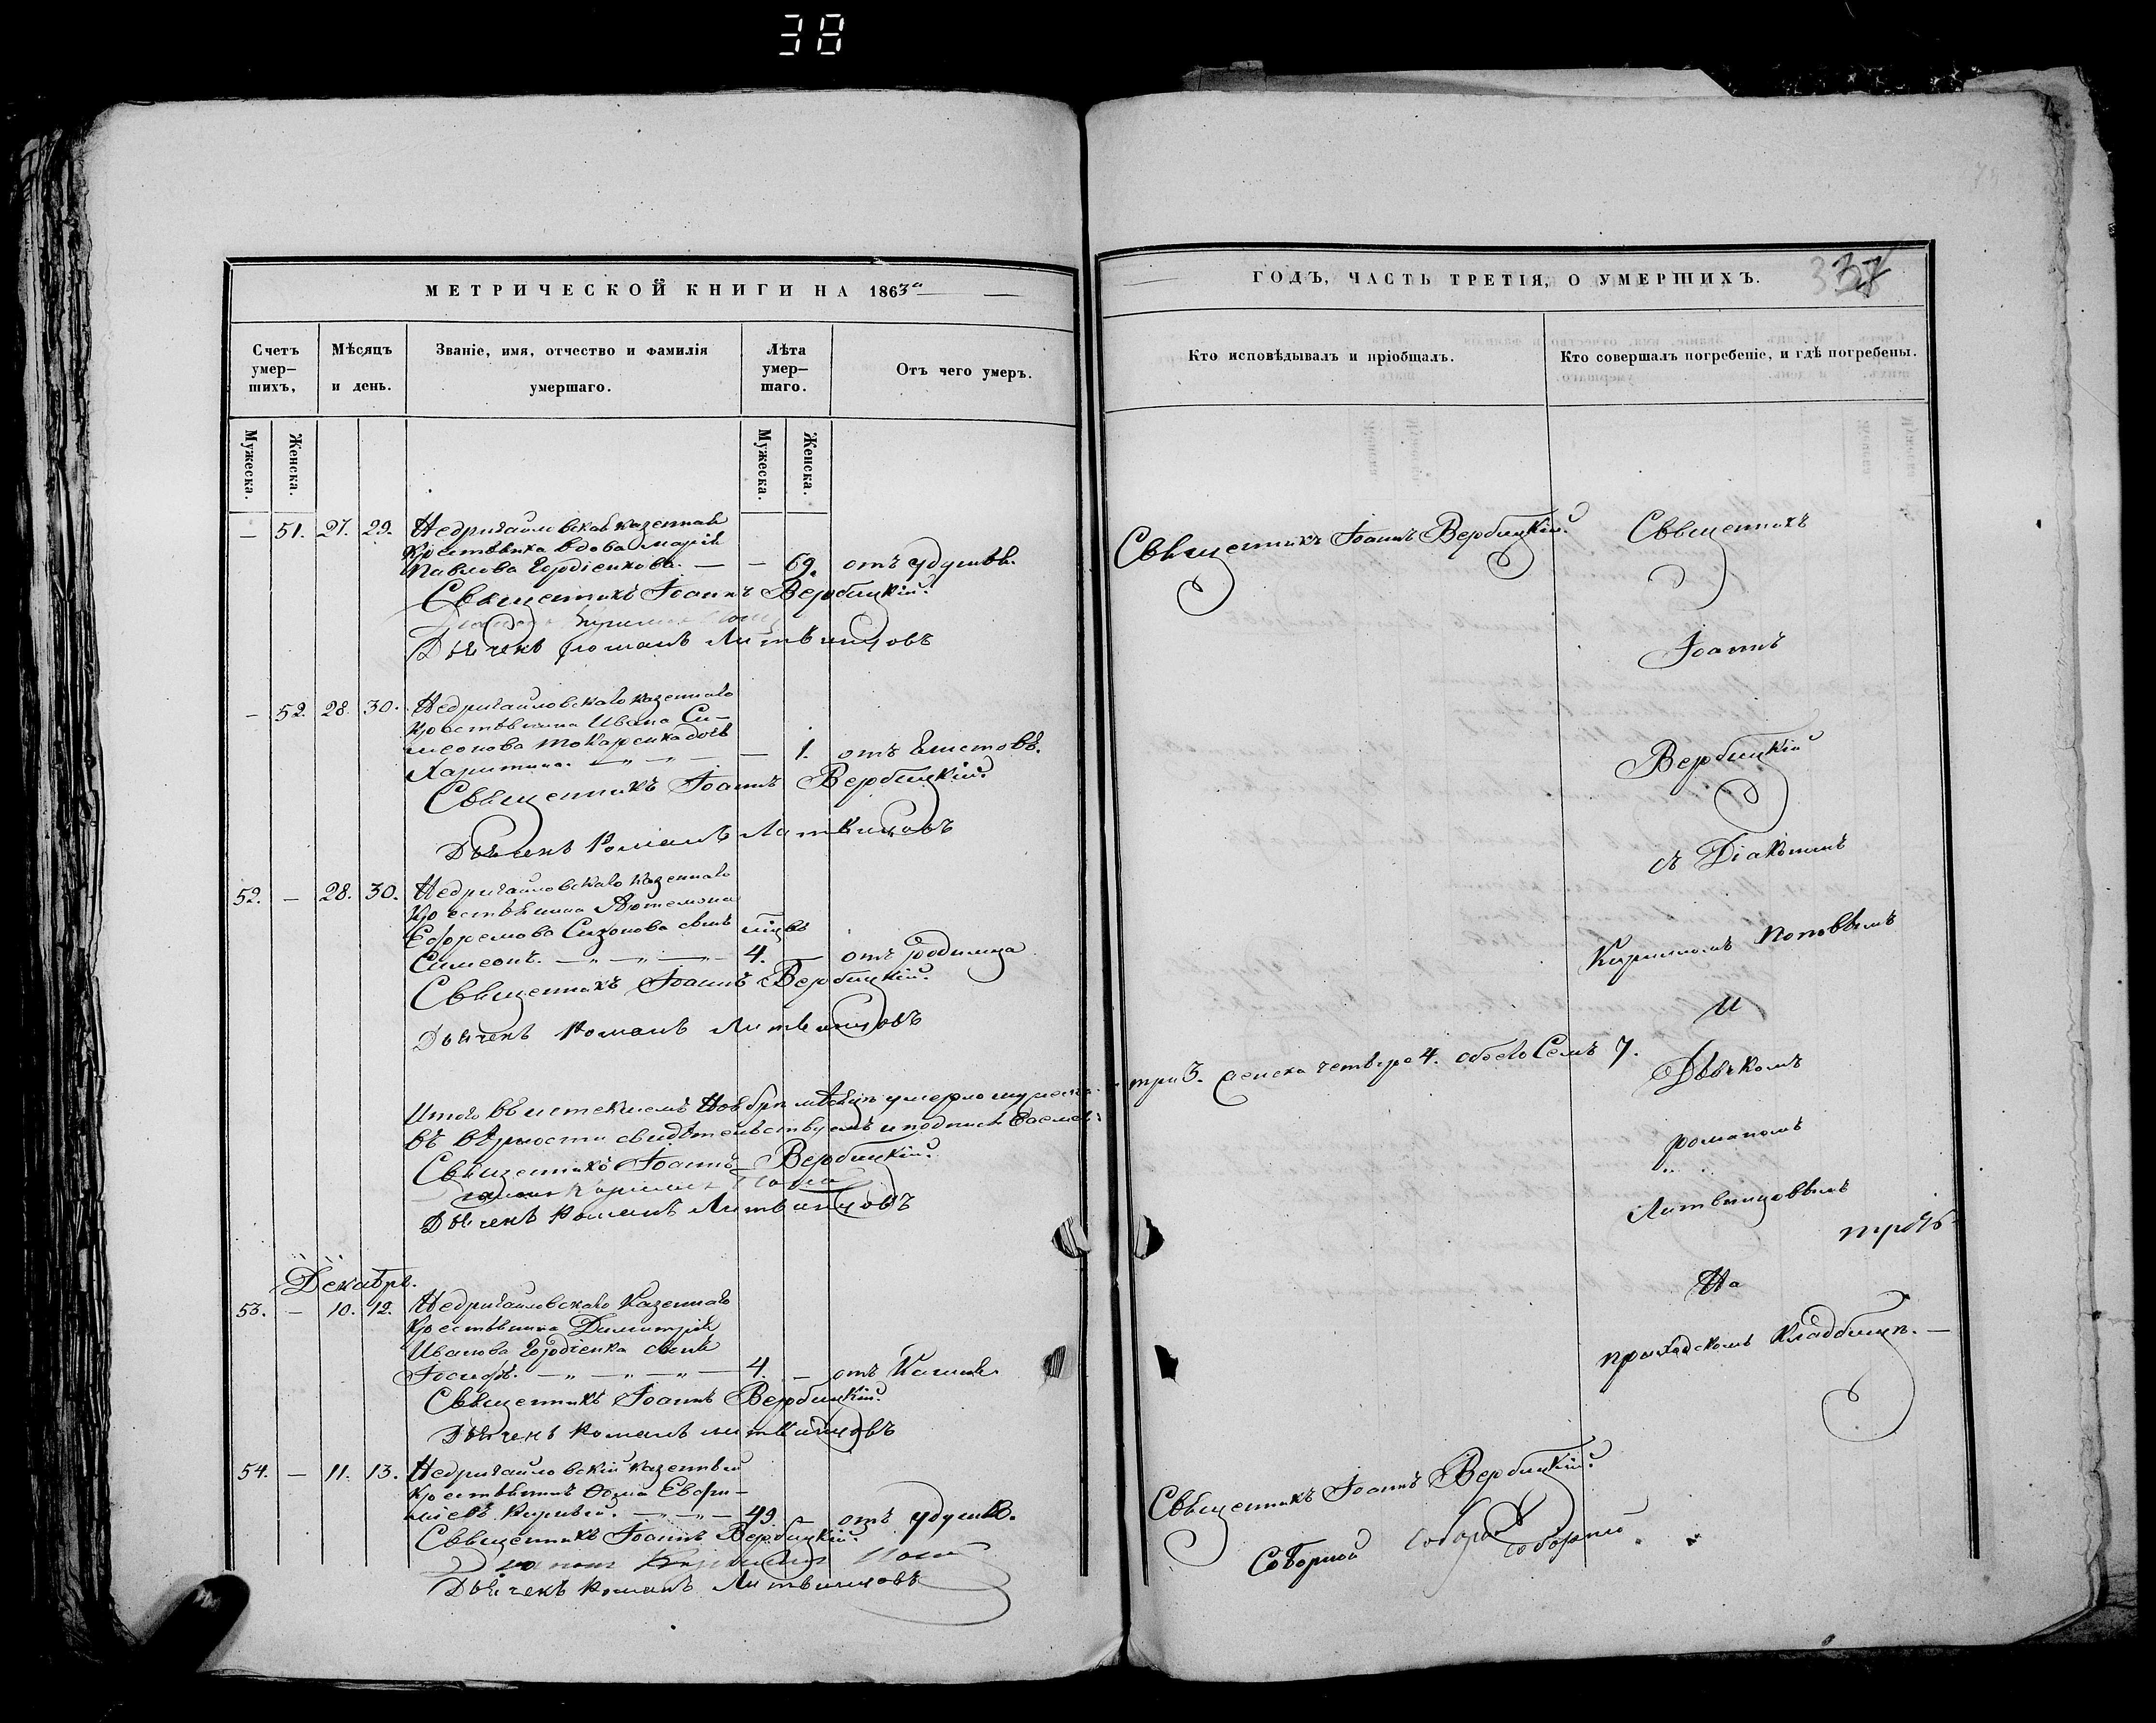 38
МЕТРИЧЕСКОЙ КНИГИ НА 1863й
Счетъ умер–шихъ,
Мѣсяцъ и день.
Званіе, имя, отчество и фамилія умершаго.
Лѣта умер–шаго.
Отъ чего умеръ.
Мужеска.
Женска.
Мужеска.
Женска.
— 51. 27. 29. Недригайловская казенная
крестьянка вдова Марія
Павлова Гордіенкова. — — 69. отъ удушья.
Священникъ Іоаннъ Вербицкій.
Дьячекъ Романъ Литвинцовъ
— 52. 28. 30. Недригайловскаго казеннаго
крестьянина Ивана Си–
меонова Токаренка дочь
Харитина. — „ — „ — — 1. отъ глистовъ.
Священникъ Іоаннъ Вербицкій.
Дьячекъ Романъ Литвинцовъ
52. — 28. 30. Недригайловскаго казеннаго
крестьянина
Ефремова Сизонова сынъ
Симеонъ. — „ — „ — 4. — отъ родимца
Священникъ Іоаннъ Вербицкій.
Дьячекъ Романъ Литвинцовъ
Итого въ истекшемъ Ноябрѣ мѣсяцѣ умерло мужеска
въ вѣрности свидѣтельствуемъ и подписываемся:
Священникъ Іоаннъ Вербицкій.
Дьячекъ Романъ Литвинцовъ
Декабрь.
53. — 10. 12. Недригайловскаго казеннаго
крестьянина Димитрія
Иванова Гордіенка сынъ
Іосифъ. — „ — „ — „ — 4. — отъ кашля
Священникъ Іоаннъ Вербицкій.
Дьячекъ Романъ Литвинцовъ
54. — 11. 13. Недригайловскій казенный
крестьянинъ Ѳома Евфи–
міевъ — „ — „ — 49. — отъ удушья.
Священникъ Іоаннъ Вербицкій.
Дьячекъ Романъ Литвинцовъ
ГОДЪ, ЧАСТЬ ТРЕТІЯ, О УМЕРШИХЪ.
Кто исповѣдывалъ и пріобщалъ.
Кто совершалъ погребеніе, и гдѣ погребены.
Священникъ Іоаннъ Вербицкій.
Священникъ
Іоаннъ
Вербицкій
съ Діакономъ
Кириломъ Поповымъ
и
три 3. женска четыре 4. обоего Семь 7.
Дьячкомъ
Романомъ
Литвинцовымъ
На
приходскомъ кладбищѣ. —
Священникъ Іоаннъ Вербицкій.
Соборной